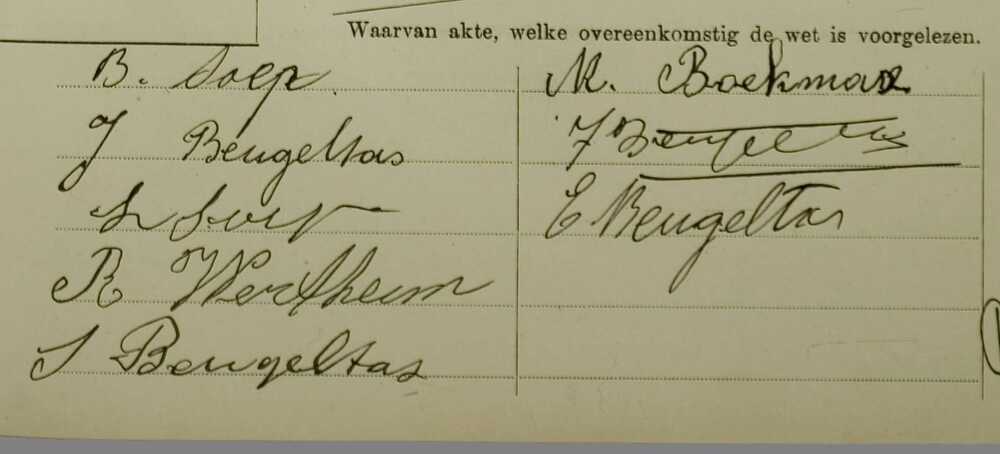 Waarvan akte, welke overeenkomstig de wet is voorgelezen.
B. Soep.
J Beugeltas
L Soep
R Wertheim
S Beugeltas
M. Boekman
J Beugeltas
E Beugeltas